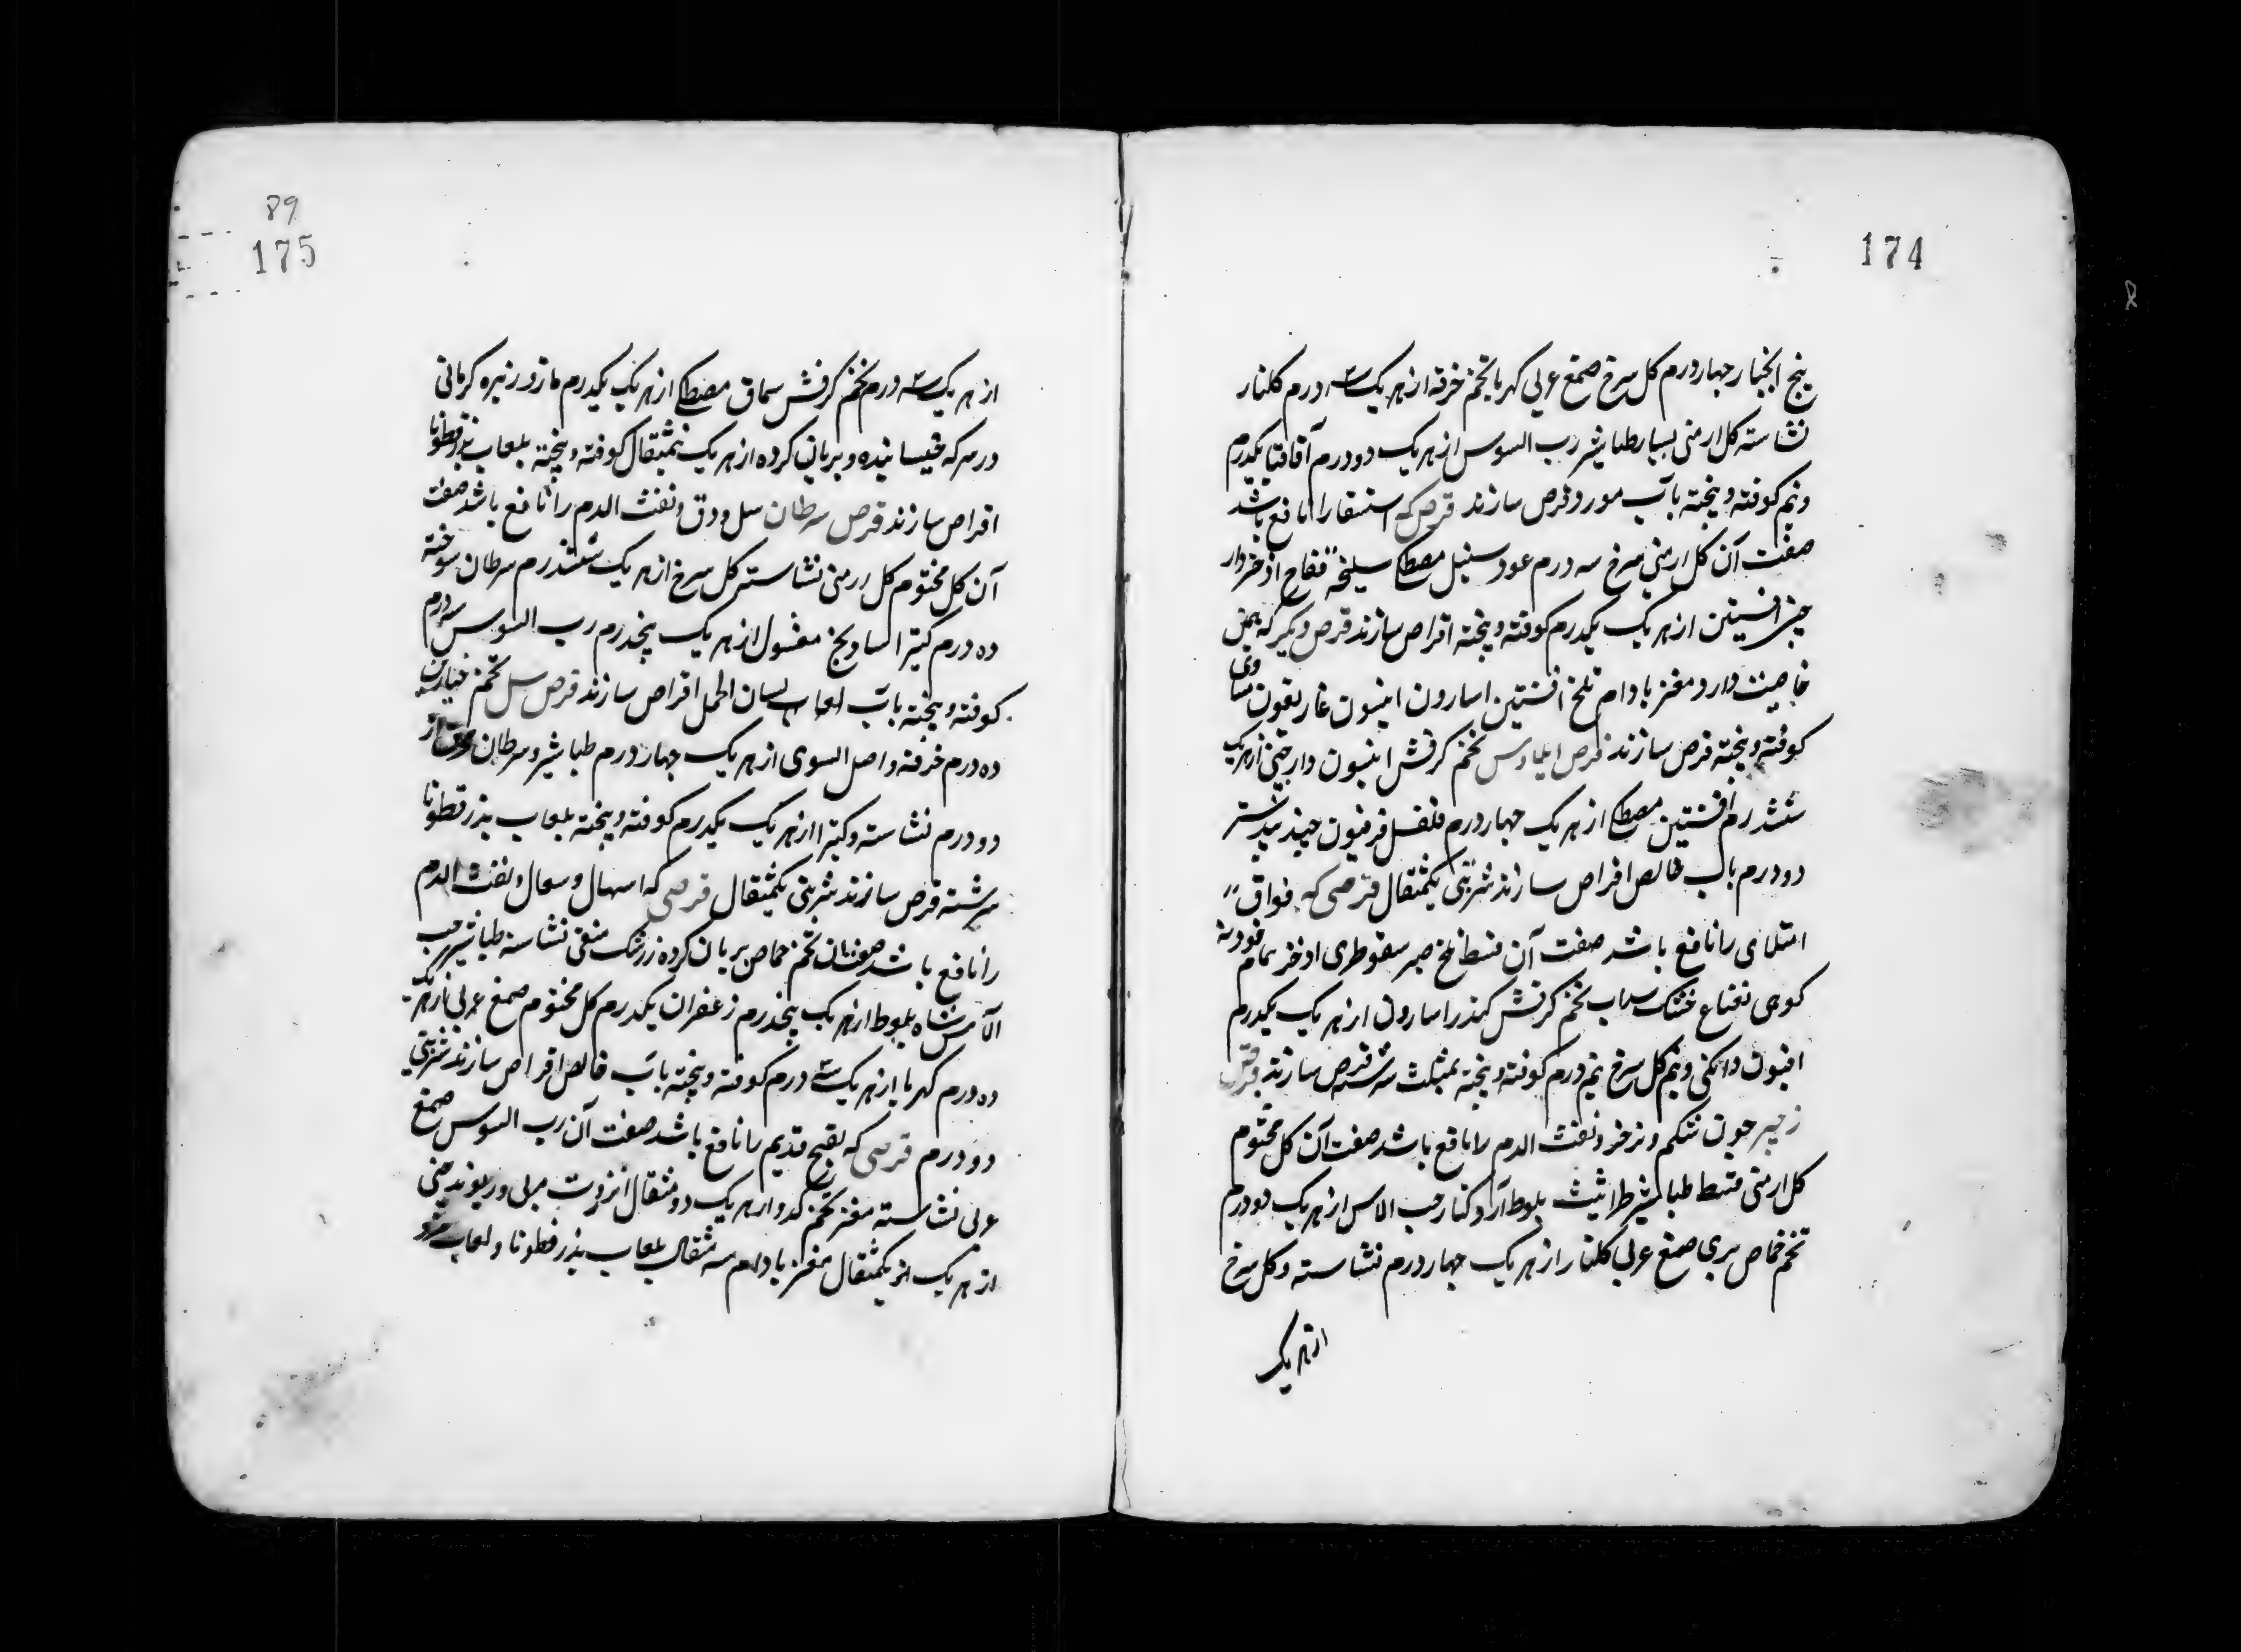 174
بنج انجبار چهار درم کل سرخ صمغ عربی کهربا تخم خرفه از هر یک سه درم کلنار
نشاسته کل ارمنی طباشیر رب السوس از هر یک دو درم آقاقیا یکدرم
ونیم کوفته وپخته بآب مورد قرص سازند قرص که استسقا را نافع باشد
صفت آن کل ارمنی سرخ سه درم عود سنبل مصطکی سلیخه فقاح اذخر دار
چینی افسنتین از هر یک یکدرم کوفته وپخته اقراص سازند قرص دیگر که همین
خاصیت دارد مغز بادام تلخ افسنتین اسارون انیسون غاریقون مساوی
کوفته وپخته قرص سازند قرص ایلاوس تخم کرفس انیسون دارچینی از هر یک
ششدرم افسنتین مصطکی از هر یک چهار درم فلفل فرفیون جندبیدستر
دو درم بآب خالص اقراص سازند شربتی یکمثقال قرصی که فواق
امتلای را نافع باشد صفت آن قسط تلخ صبر سقوطری اذخر نمام فودنه
کوهی نعناع خشک سداب تخم کرفس کندر اسارون از هر یک یکدرم
افیون دانکی ونیم کل سرخ نیم درم کوفته وپخته بمثلث سرشته قرص سازند قرص
زحیر خون شکم و نفث الدم را نافع باشد صفت آن کل مختوم
کل ارمنی قسط طباشیر طراثیث بلوط آرد کنار حب الاس از هر یک دو درم
تخم حماض بری صمغ عربی کلنار از هر یک چهار درم نشاسته وکل سرخ
از هر یک
89
175
از هر یک سه درم تخم کرفس سماق مصطکی از هر یک یکدرم مازو زیره کرمانی
در سرکه خیسانیده وبریان کرده از هر یک نیمثقال کوفته وپخته بلعاب بذرقطونا
اقراص سازند قرص سرطان سل ودق ونفث الدم را نافع باشد صفت
آن کل مختوم کل ارمنی نشاسته کل سرخ از هر یک ششدرم سرطان سوخته
ده درم کتیرا شادنج مغسول از هر یک پنجدرم رب السوس سه درم
کوفته وپخته بآب لسان الحمل اقراص سازند قرص سل تخم خیارین
ده درم خرفه واصل السوس از هر یک چهار درم طباشیر وسرطان
دو درم نشاسته وکتیرا از هر یک یکدرم کوفته وپخته بلعاب بذرقطونا
سرشته قرص سازند شربتی یکمثقال قرصی که اسهال وسعال ونفث الدم
را نافع باشد صفت آن تخم حماض بریان کرده زرشک منقی نشاسته طباشیر حب
الآس شاه بلوط از هر یک پنجدرم زعفران یکدرم کل مختوم صمغ عربی از هر یک
ده درم کهربا از هر یک سه درم کوفته وپخته بآب خالص اقراص سازند شربتی
دو درم قرصی که تقیح قدیم را نافع باشد صفت آن رب السوس صمغ
عربی نشاسته مغز تخم کدو از هر یک دو مثقال انزروت مربی وریوند چینی
از هر یک یکمثقال مغز بادام سه مثقال بلعاب بذرقطونا ولعاب